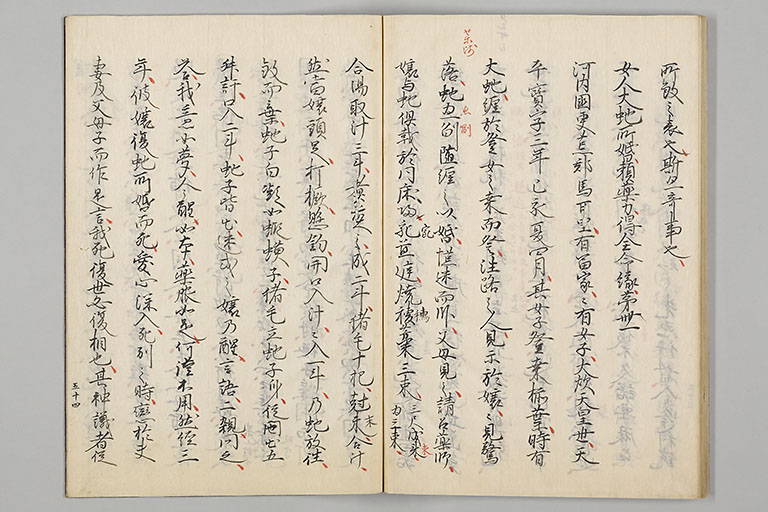 所發之表也斯乃奇事也
女人大蛇所婚頼藥力得全命緣第卌一
河内國更荒郡馬甘里有富家々有女子大炊天皇世天
平寶字三年己亥夏四月其女子登桒揃葉時有
大蛇纏於登女之桒而登往路之人見示於孃々見驚
落蛇亦副随纏之以婚慌迷而臥父母見之請召藥師
孃与蛇俱載於同床歸家置庭燒稷藁三束 三尺成束
合湯取汁三斗煮煎之成二斗猪毛十把尅末合汁
然當孃頭足打橛懸鈎開口入汁々入一斗乃蛇放往
殺而棄蛇子白凝如蝦蟆子猪毛立蛇子身従出五
升許口入二斗蛇子皆出迷惑之孃乃醒言語二親問之
荅我意如夢今醒如本藥服如是何謹不用然經三
年彼孃復蛇所婚而死愛心深入死別之時戀於夫
妻及父母子而作是言我死復世必復相也其神識者従
五十四